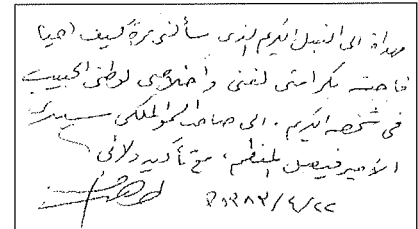 مهداة الى النبيل الكريم الذى سألنى مرة كيف احيا
فأجبته بكرامتى لفنى واخلاصى لوطنى الحبيب
فى شخصه الكريم. الى صاحب السمو الملكى سيدى
الأمير فيصل المعظم، مع تأكيد ولائى
١٣٨٣/٤/٢٢